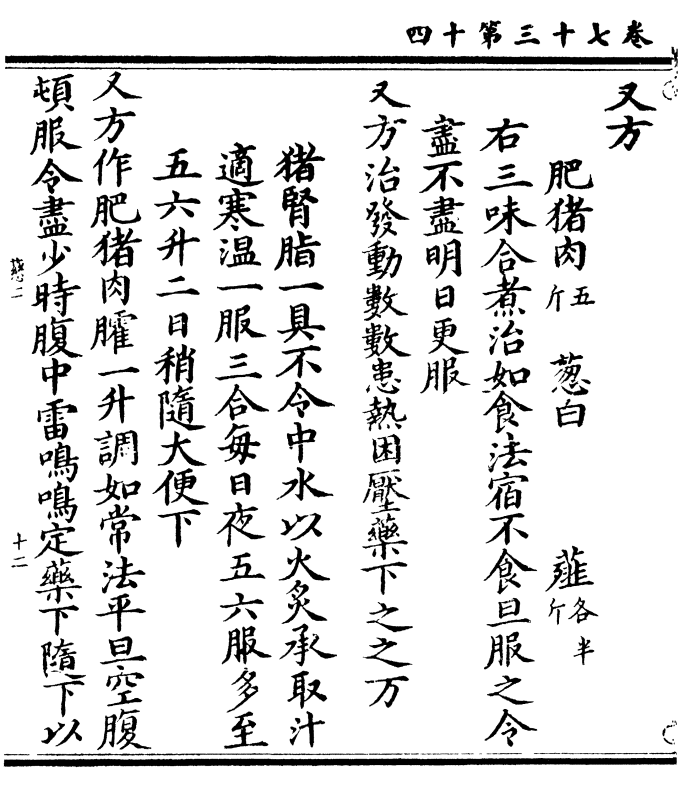 卷七十三第十四
又方
肥猪肉五斤 葱白 薤各半斤
右三味合煮治如食法宿不食旦服之令
盡不盡明日更服
又方治發動數數患熱困壓藥下之之方
猪腎脂一具不令中水以火炙承取汁
適寒温一服三合每日夜五六服多至
五六升二日稍隨大便下
又方作肥猪肉臛一升調如常法平旦空腹
頓服令盡少時腹中雷鳴鳴定藥下隨下以
十二